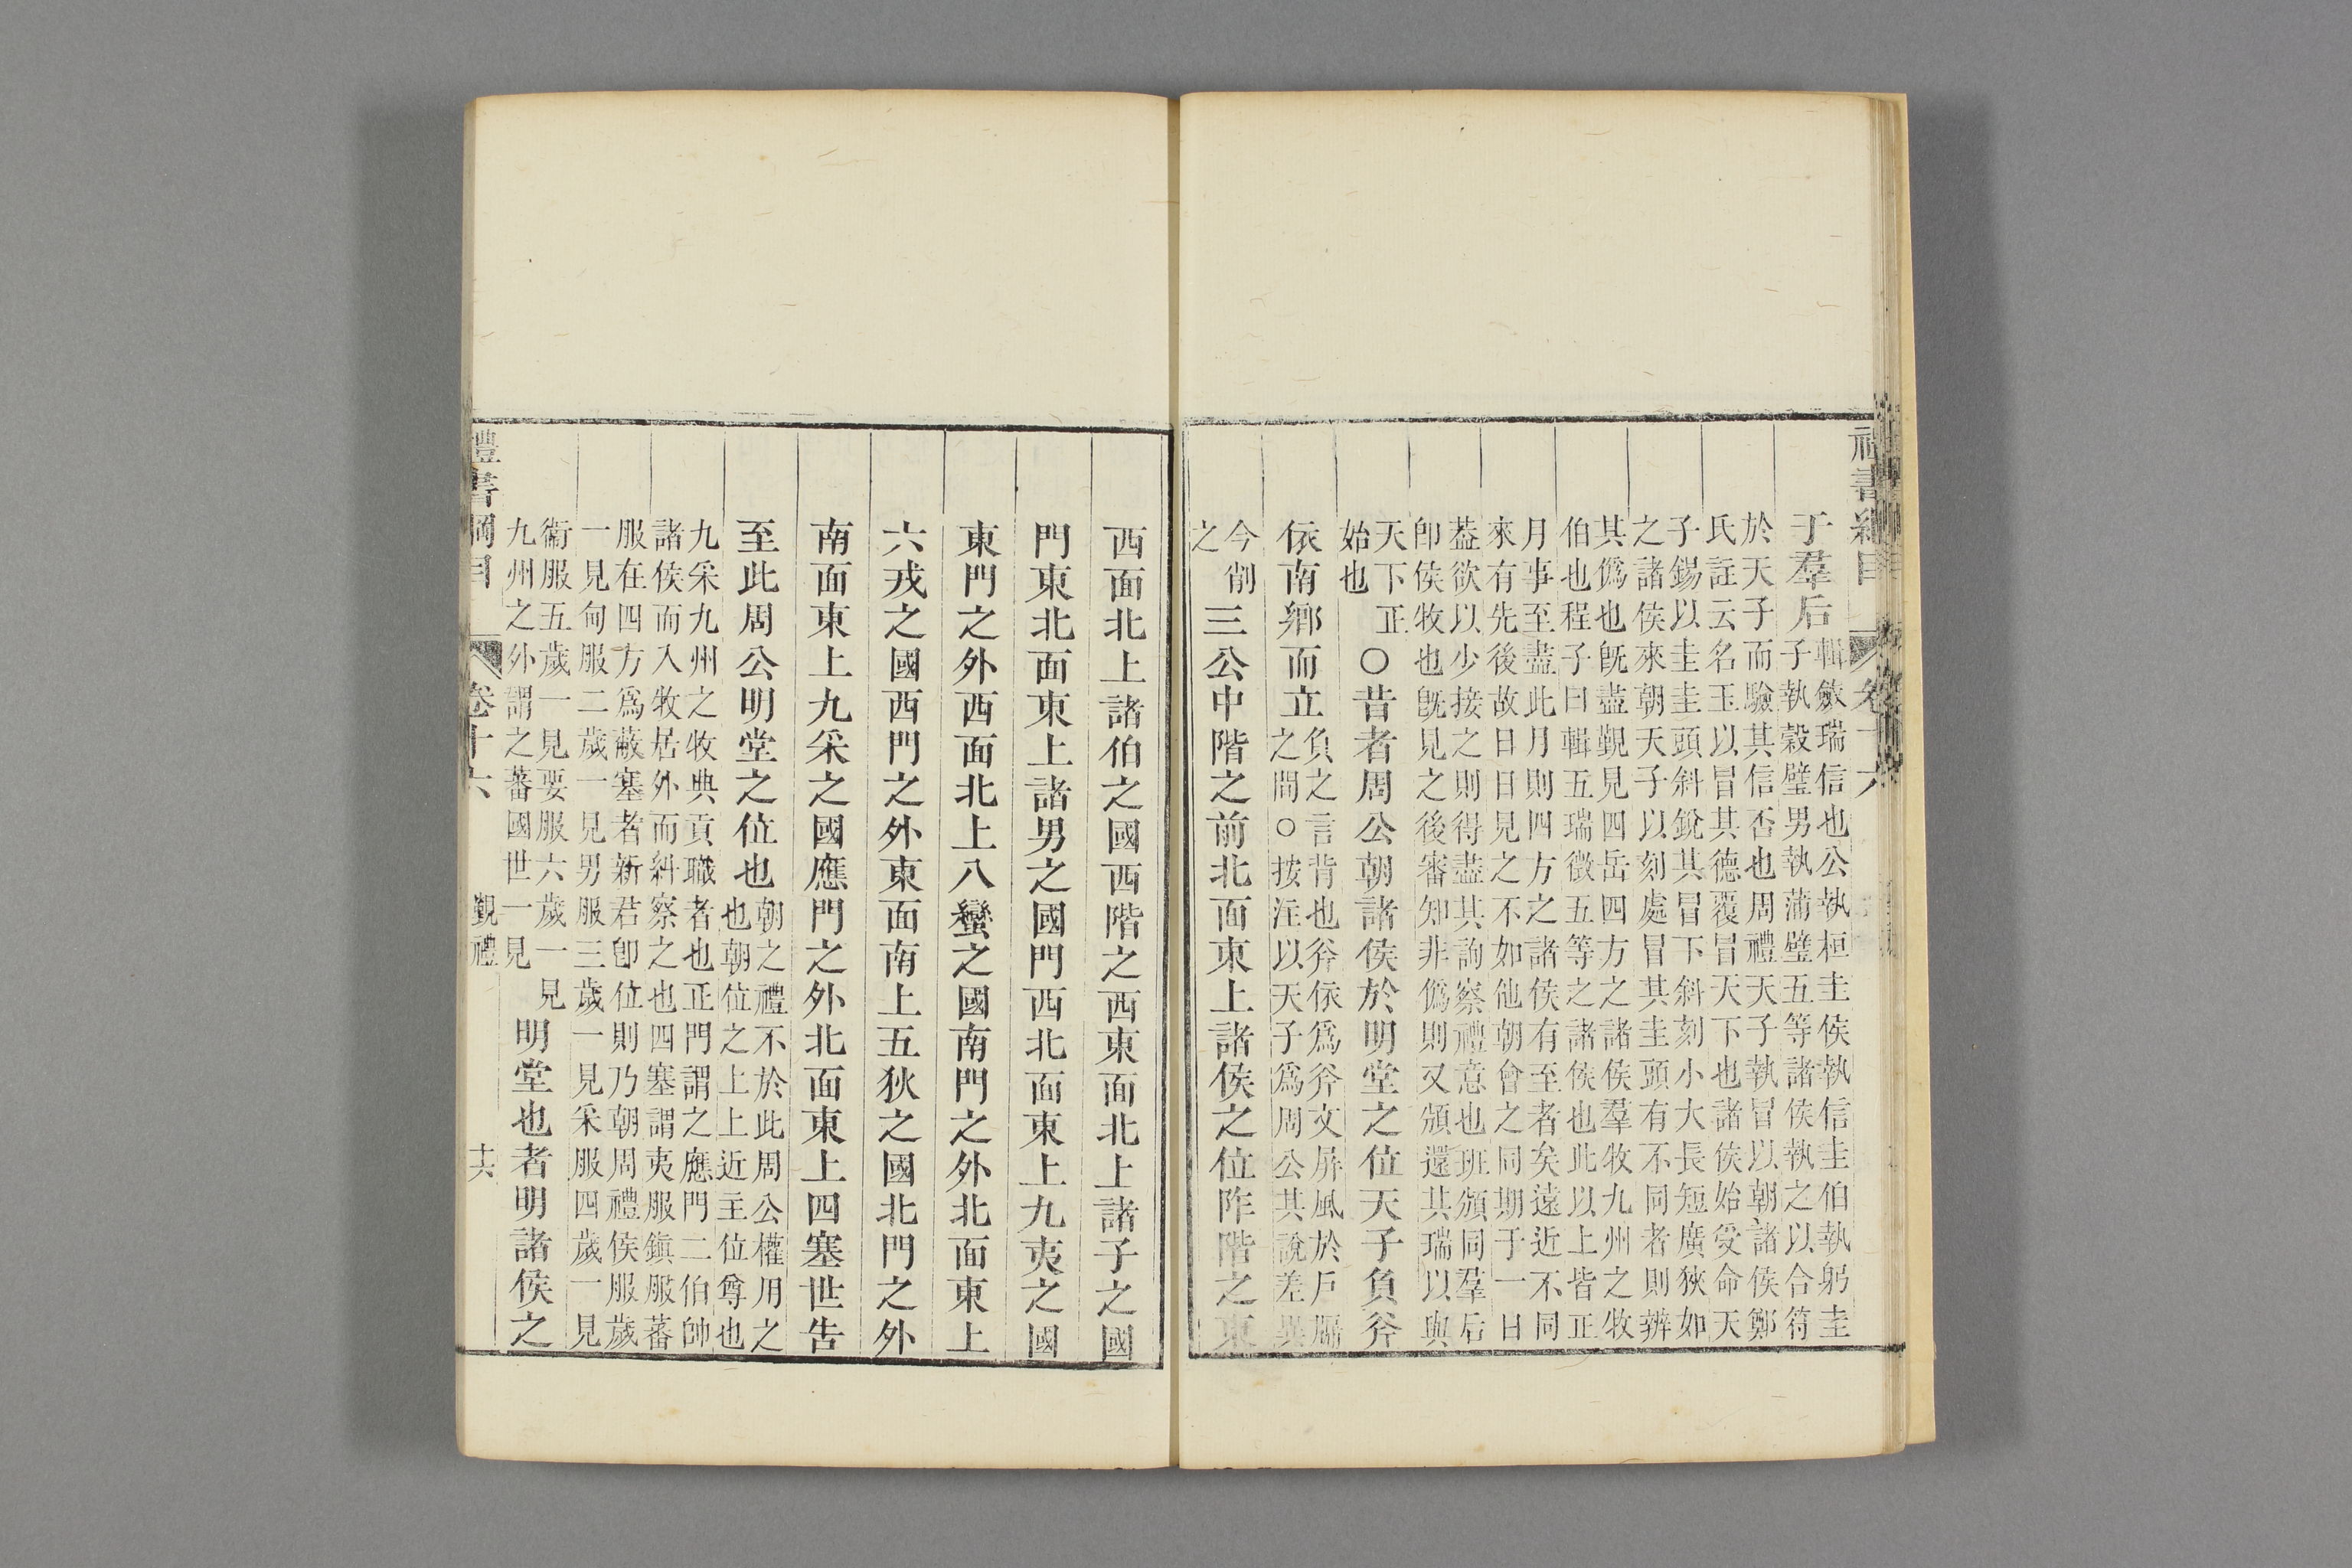 禮書綱目 卷十六
于羣后
輯斂瑞信也公執桓圭侯執信圭伯執躬圭
子執穀璧男執蒲璧五等諸侯執之以合符
於天子而驗其信否也周禮天子執冒以朝諸侯鄭
氏註云名玉以冒其德覆冒天下也諸侯始受命天
子錫以圭圭頭斜銳其冒下斜刻小大長短廣狹如
之諸侯來朝天子以刻處冒其圭頭有不同者則辨
其僞也旣盡覲見四岳四方之諸侯羣牧九州之牧
伯也程子曰輯五瑞徵五等之諸侯也此以上皆正
月事至盡此月則四方之諸侯有至者矣遠近不同
來有先後故日日見之不如他朝會之同期于一日
葢欲以少接之則得盡其詢察禮意也班頒同羣后
卽侯牧也旣見之後審知非僞則又頒還其瑞以與
天下正
始也
○昔者周公朝諸侯於明堂之位天子負斧
依南鄉而立
負之言背也斧依爲斧文屏風於戶牖
之間○按注以天子爲周公其說差異
今削
之
三公中階之前北面東上諸侯之位阼階之東
西面北上諸伯之國西階之西東面北上諸子之國
門東北面東上諸男之國門西北面東上九夷之國
東門之外西面北上八蠻之國南門之外北面東上
六戎之國西門之外東面南上五狄之國北門之外
南面東上九采之國應門之外北面東上四塞世告
至此周公明堂之位也
朝之禮不於此周公權用之
也朝位之上上近主位尊也
九采九州之牧典貢職者也正門謂之應門二伯帥
諸侯而入牧居外而糾察之也四塞謂夷服鎭服蕃
服在四方爲蔽塞者新君卽位則乃朝周禮侯服歲
一見甸服二歲一見男服三歲一見采服四歲一見
衞服五歲一見要服六歲一見
九州之外謂之蕃國世一見
明堂也者明諸侯之
禮書綱目 卷十六 覲禮 十六